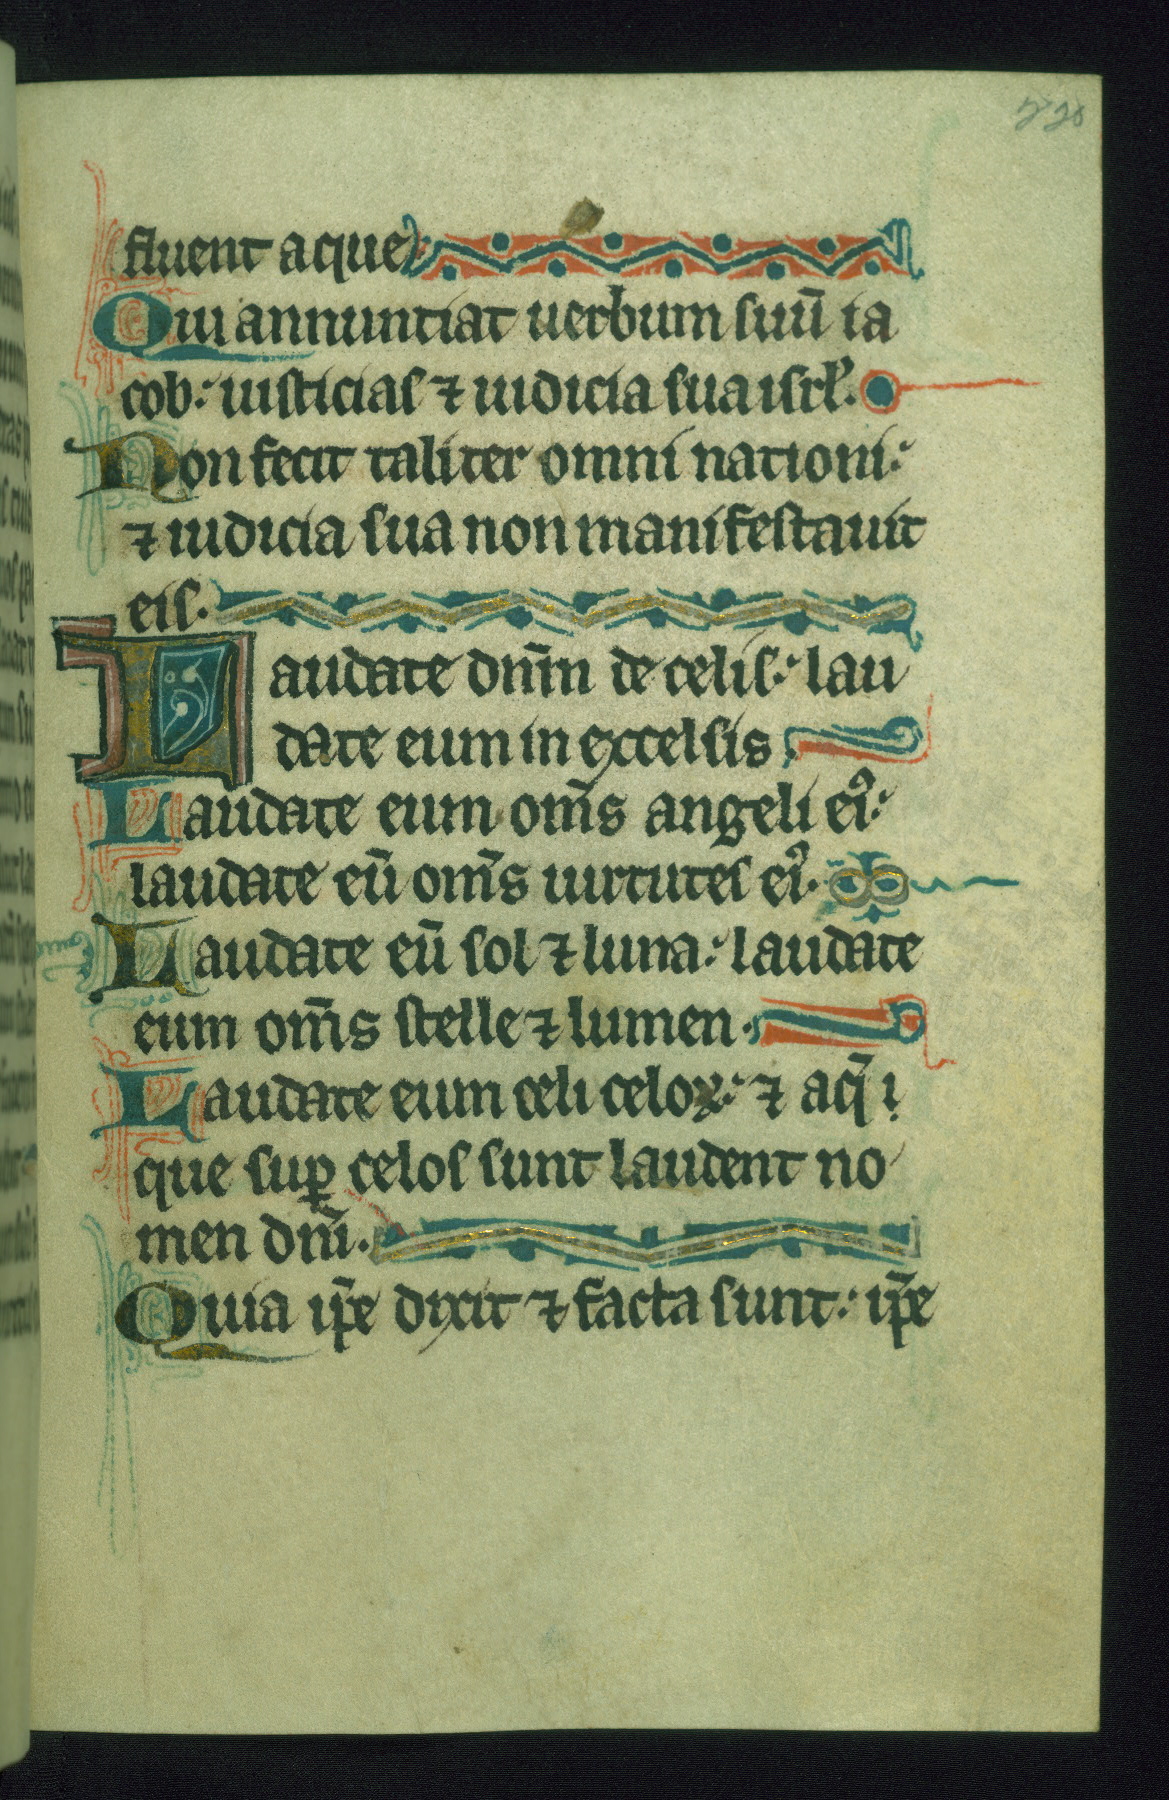 fluent aque
Qui annuntiat uerbum suū ia
cob: iusticias ⁊ iudicia sua isrł.
Non fecit taliter omni nationi:
⁊ iudicia sua non manifestauit
eis.
Laudate dn̄m de celis: lau
date eum in excelsis
Laudate eum om̄s angeli eiꝰ:
laudate eū om̄s uirtutes eiꝰ.
Laudate eū sol ⁊ luna: laudate
eum om̄s stelle ⁊ lumen.
Laudate eum celi celoꝝ: ⁊ aq̄
que suꝑ celos sunt laudent no
men dn̄i.
Quia ip̄e dixit ⁊ facta sunt: ip̄e